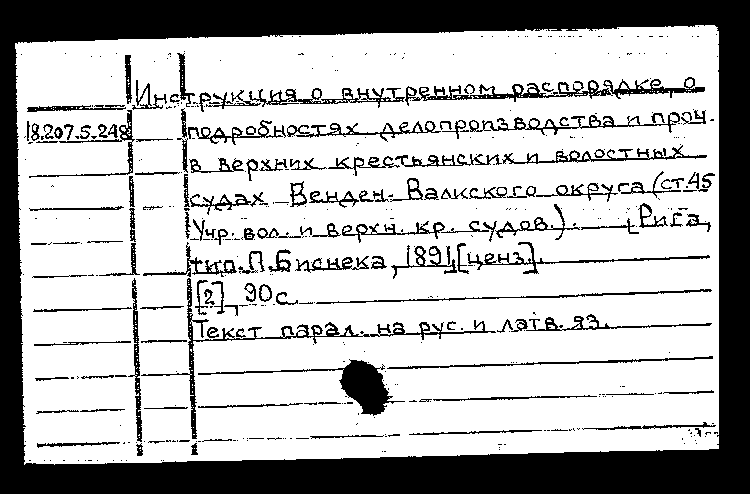 Инструкция о внутренном распорядке, о
18.207.5.248 подробностях делопроизводства и проч.
в верхних крестьянских и волостных
судах Венден-Валкского округа (ст.45
Учр. вол. и верхн. кр. судов.). [Рига,
тип. П. Биснека, 1891, [ценз.].
[2], 90 с.
Текст парал. на рус. и латв. яз.